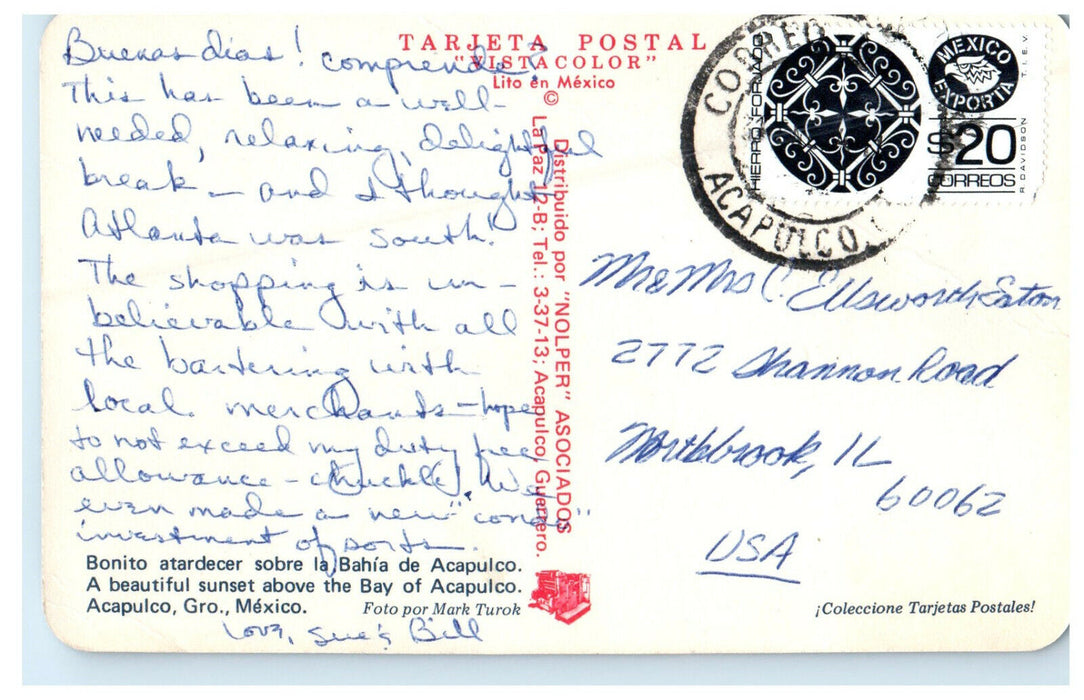 TARJETA POSTAL
"VISTACOLOR"
Lito en México
©
Buenas dias! comprende?
This has been a well-
needed, relaxing, delightful
break – and I thought
Atlanta was south!
The shopping is un-
believable with all
the bartering with
local merchants – hope
to not exceed my duty free
allowance – (chuckle). We
even made a new "condo"
investment of sorts.
Love, Sue & Bill
Bonito atardecer sobre la Bahía de Acapulco.
A beautiful sunset above the Bay of Acapulco.
Acapulco, Gro., México.
Foto por Mark Turok
Distribuido por "NOLPER" ASOCIADOS
La Paz 12-B; Tel.: 3-37-13; Acapulco, Guerrero.
CORREO
ACAPULCO,
HIERRO FORJADO
MEXICO
EXPORTA
T.I.E.V.
$20
CORREOS
R. DAVIDSON
Mr & Mrs C. Ellsworth Eaton
2772 Shannon Road
Northbrook, IL
60062
USA
¡Coleccione Tarjetas Postales!